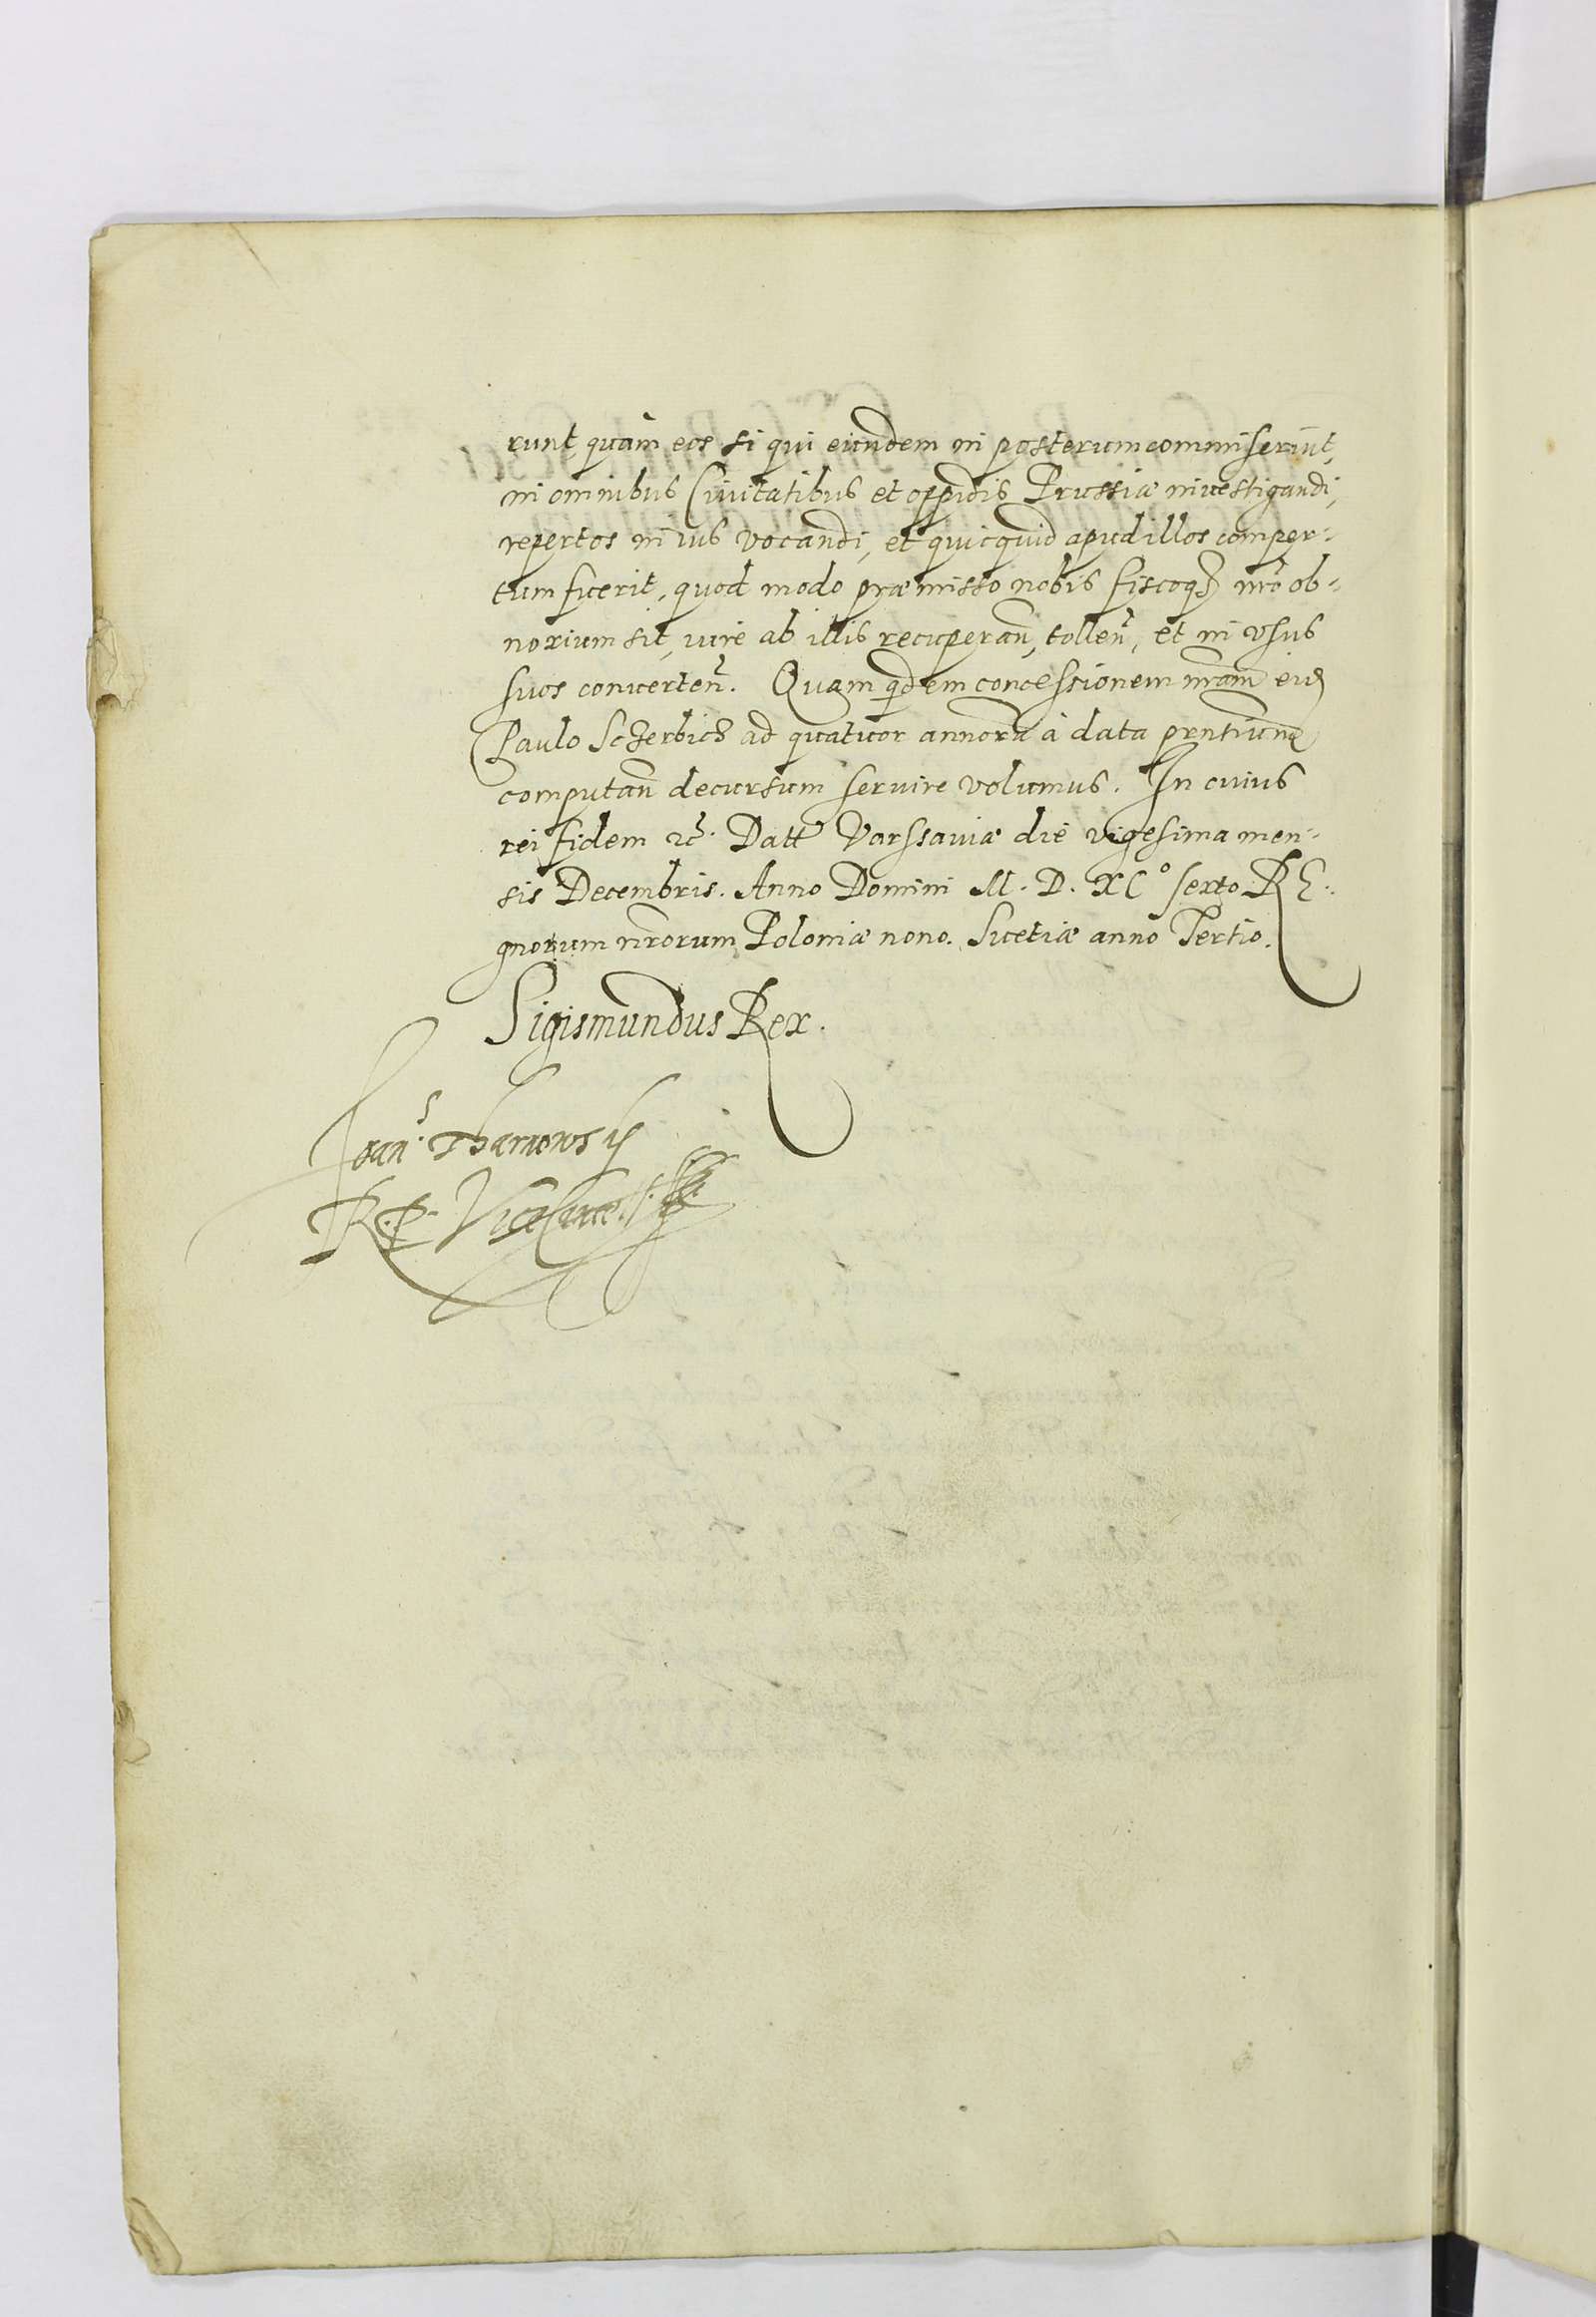 runt, quàm eos si qui eiusdem in posterum commiserint,
in omnibus Civitatibus et oppidis Prussiæ investigandi,
repertos in ius vocandi, et quicquid apud illos comper-
tum fuerit, quod modo præmisso nobis fiscoq₃ nrõ ob-
noxium sit, iure ab illis recuperan̄, tollen̄, et in vsus
suos conuerten̄. Quam qdem concessionem nram̄ eid
Paulo Sczerbicz ad quatuor annorū à data pntium
computan̄ decursum seruire volumus. In cuius
rei fidem ꝛc̃. Datt Varssauiæ die vigesima men-
sis Decembris. Anno Domini M. D. XC° sexto RE-
gnorum nrorum Poloniæ nono. Suetiæ anno Tertio.
Sigismundus Rex.
Joan.s Tharnowsky
R. P. Vicecanc.